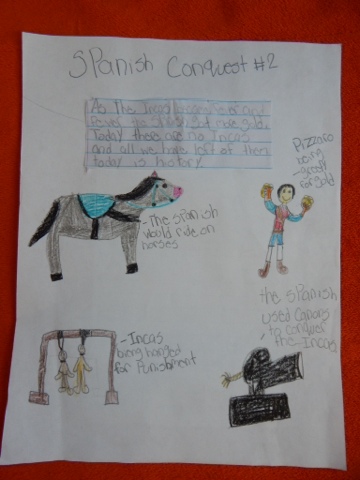 SPanish Conquest #2
As The Incas became fewer and
fewer the Spanish got more gold.
Today there are no Incas
and all we have left of them
today is history.
Pizzaro
being
greedy
for gold
- The Spanish
would ride on
horses
the Spanish
used Canons
to conquer
the Incas
- Incas
being hanged
for Punishment